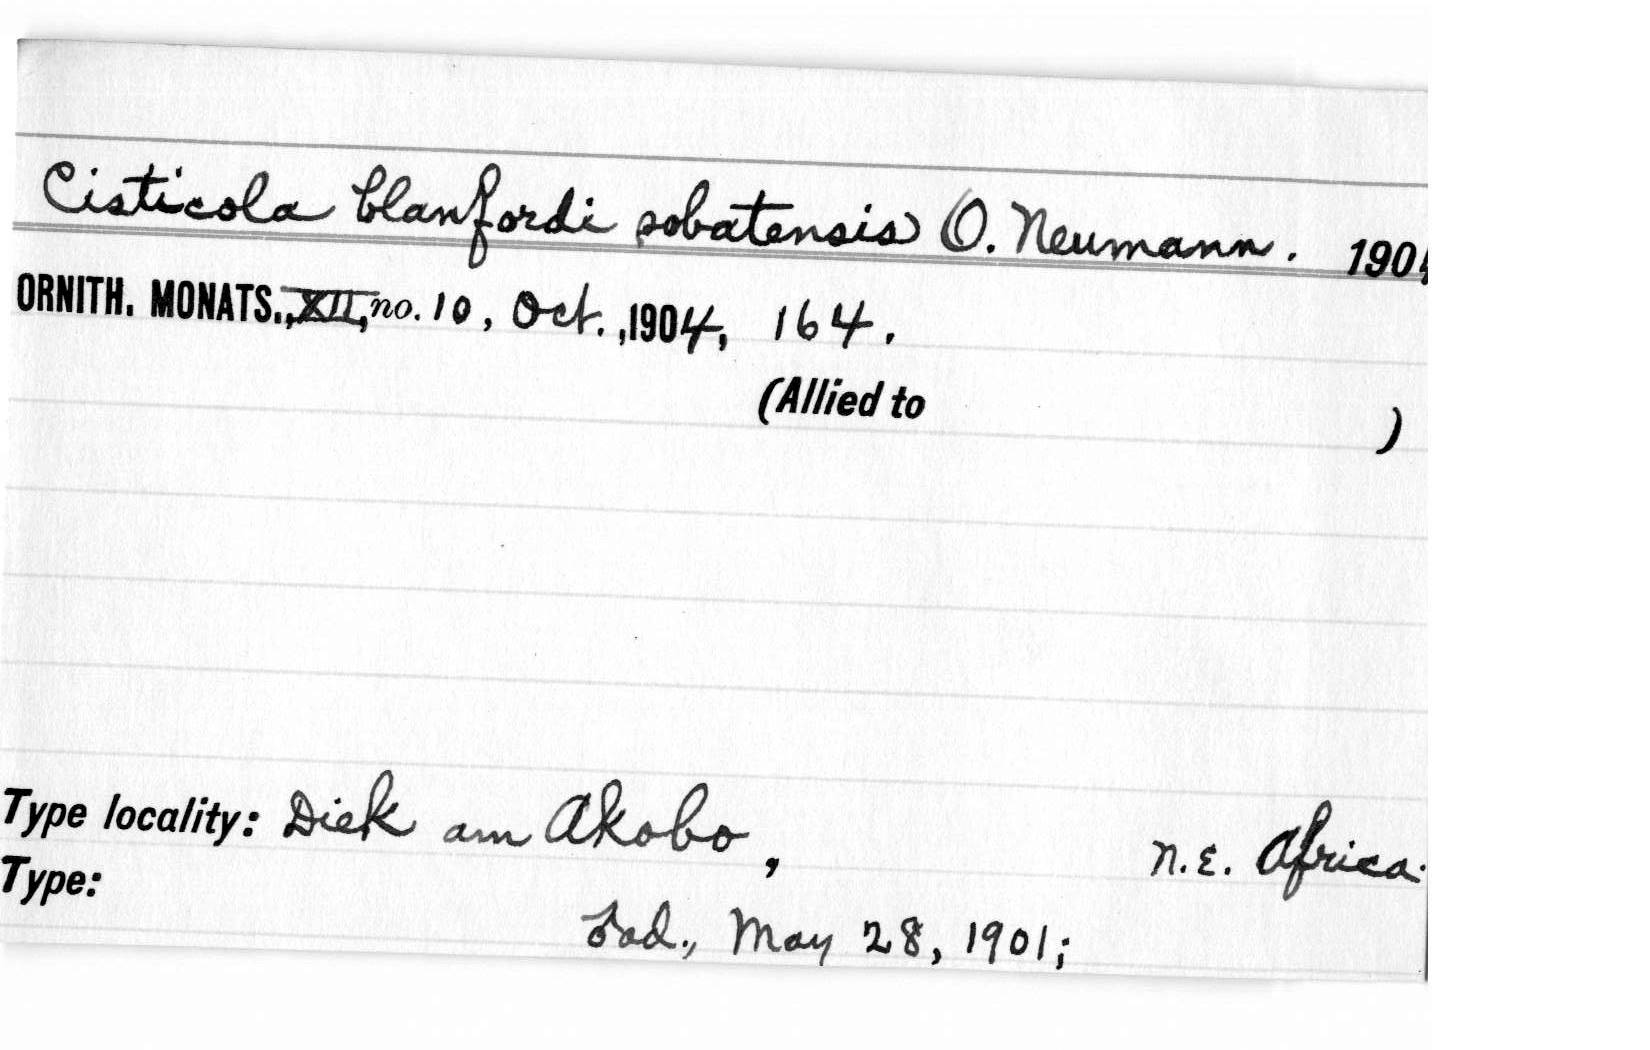 Cisticola blanfordi sobatensis O. Neumann. 1904
ORNITH. MONATS., XII, no. 10, Oct. ,1904, 164.
(Allied to )
Type locality: Diek am Akobo, N.E. Africa.
Type:
♂ad., May 28, 1901;